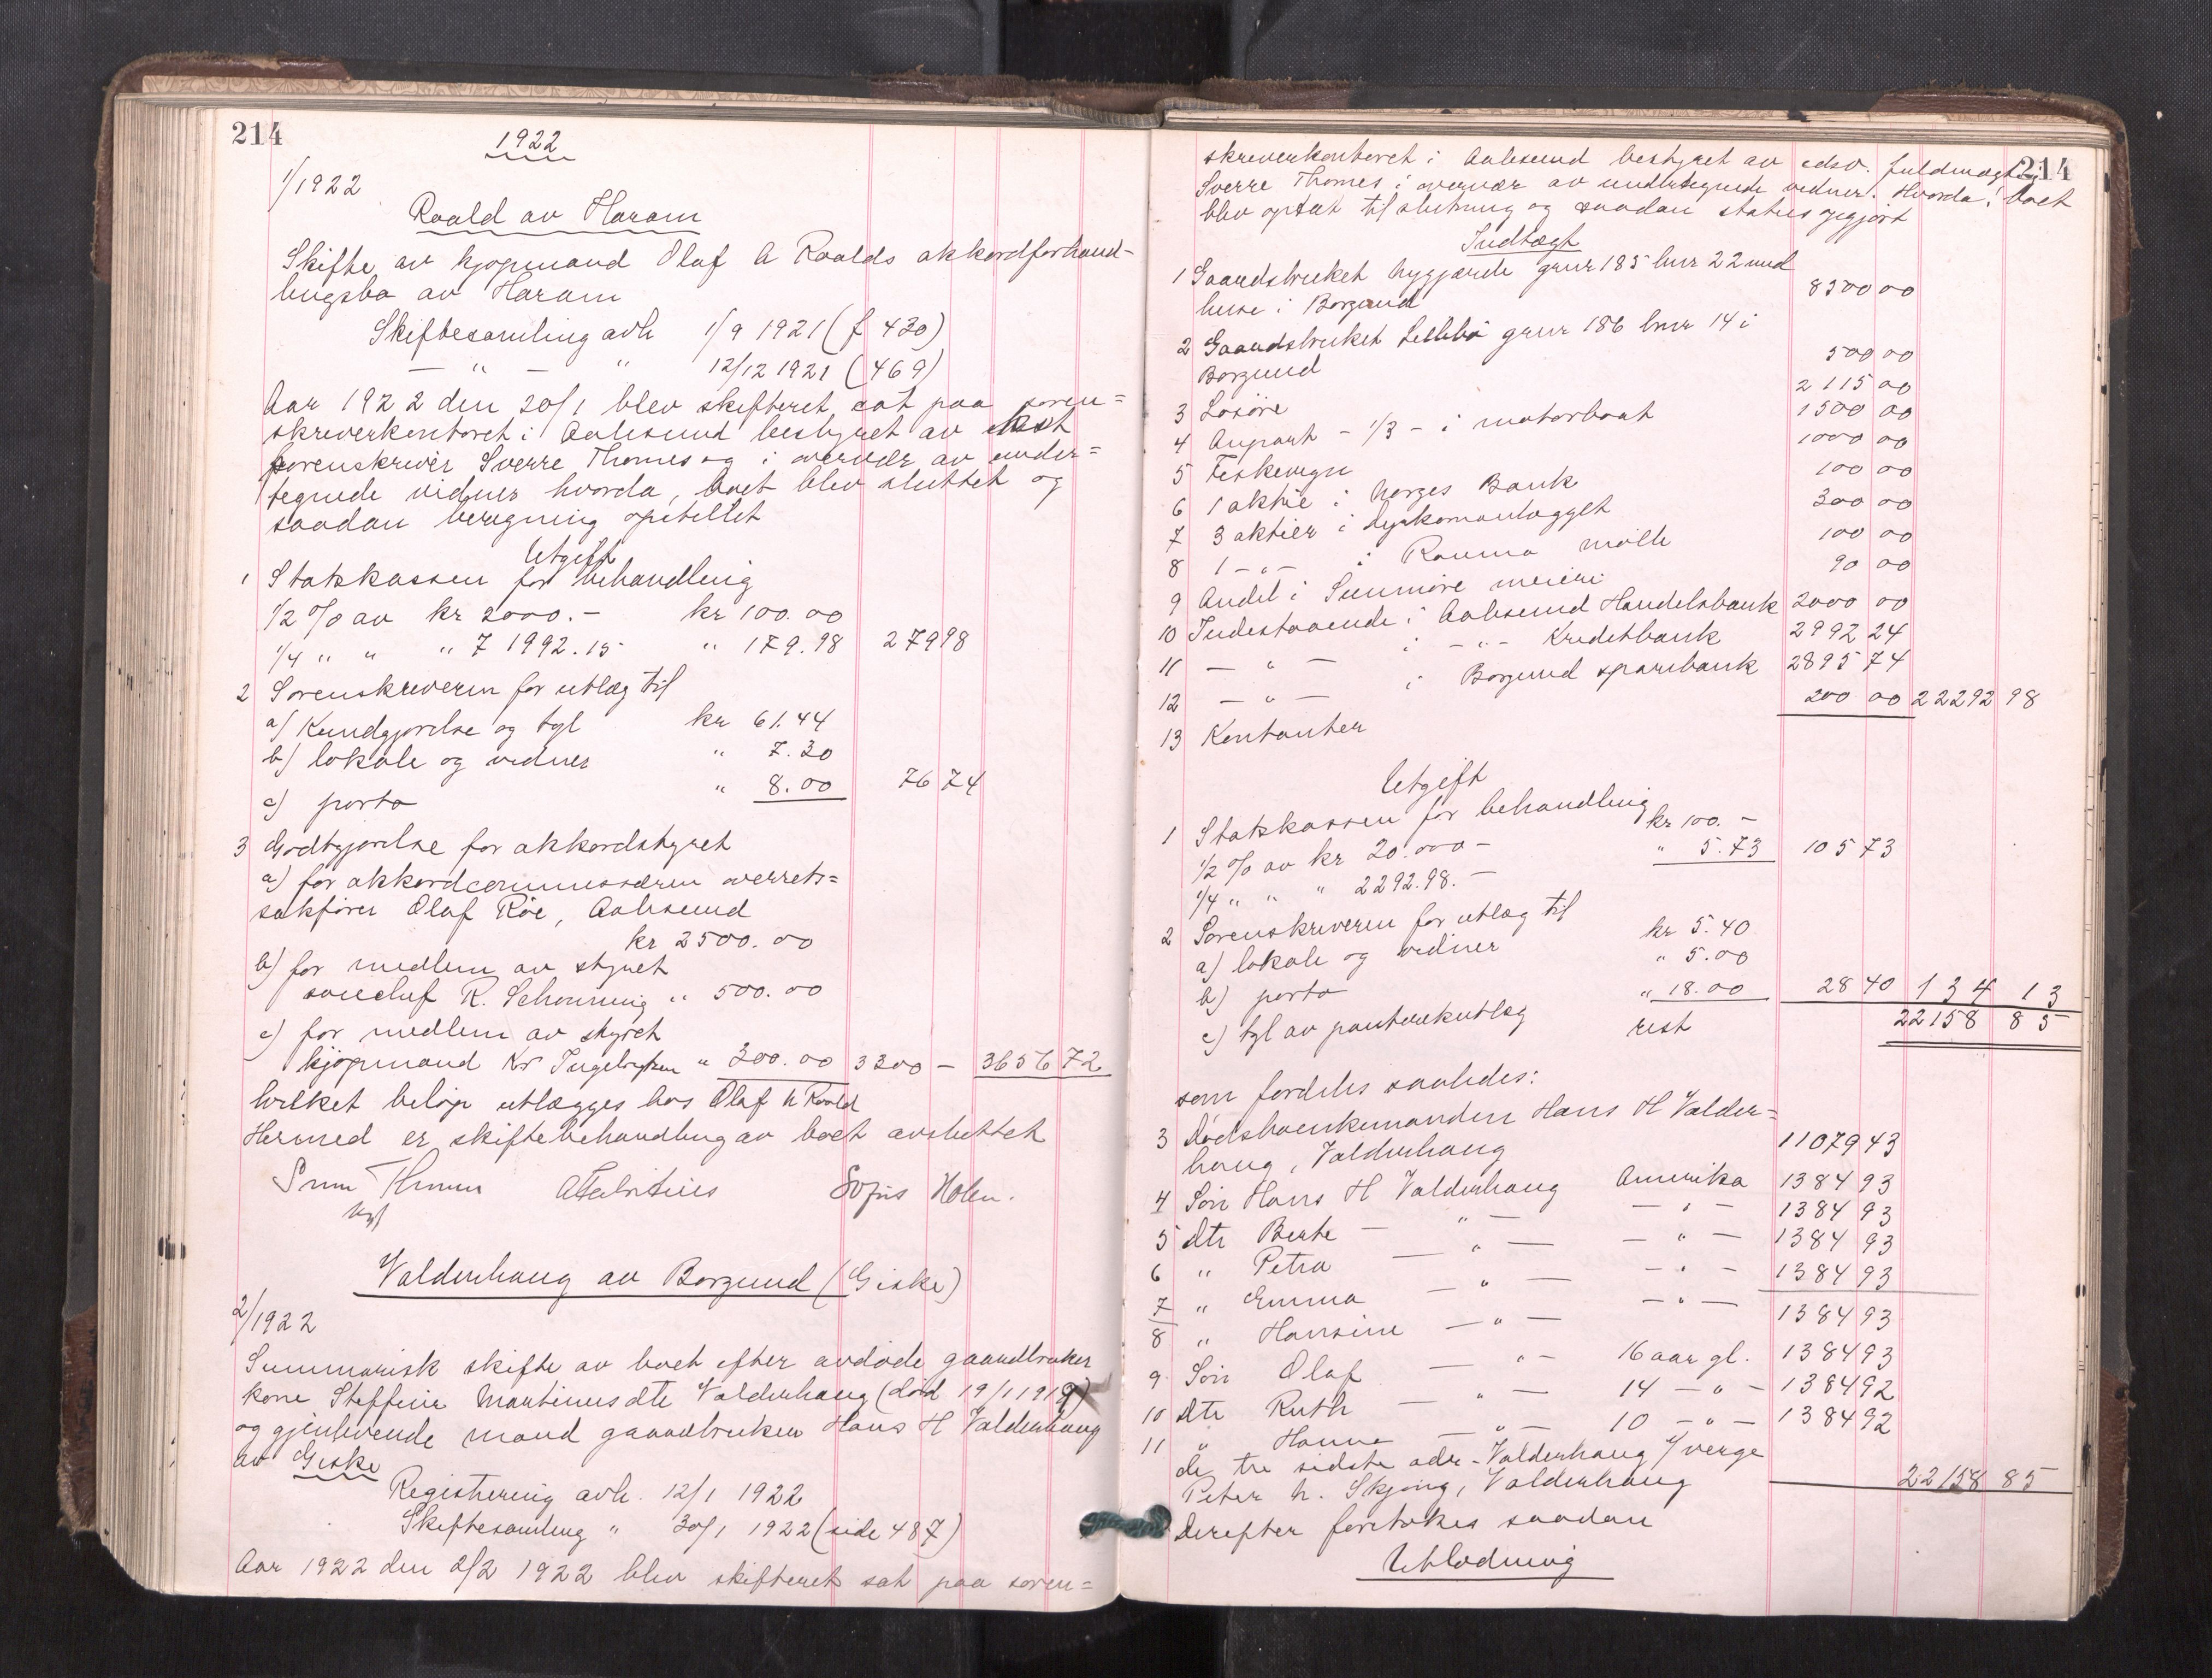 214
1922
1/1922
Roald av Haram
Skifte av kjøpmand Olaf A Roalds akkordforhand-
lingsbo av Haram
Skiftesamling avh 1/9 1921 (f 430)
— " — " 12/12 1921 (469)
Aar 1922 den 20/1 blev skifteret sat paa soren=
skriverkontoret i Aalesund bestyret av
sorenskriver Sverre Thomes og i overvær av under=
tegnede vidner hvorda, boet blev sluttet og
saadan beregning opstillet
Utgift
1 Statskassen for behandling
1/2 % av kr 2000.- kr 100.00
1/4 " " " 71992.15 " 179.98 279 98
2 Sorenskriveren for utlæg til
a) Kundgjørelse og tgl kr 61.44
b) lokale og vidner " 7.30
c) porto " 8.00 76 74
3 Godtgjørelse for akkordstyret
a) for akkordcommissæren overrets=
sakfører Olaf Röe, Aalesund
kr 2500.00
b) for medlem av styret
R. Schonning " 500.00
c) for medlem av styret
kjøpmand Kr Ingebrigtsen " 300.00 3300 — 3656 72
hvilket beløp utlægges hos Olaf A Roald
Hermed er skiftebehandling av boet avsluttet
Sverre Thomes Sofus Holen.
Valderhaug av Borgund (Giske)
2/1922
Summarisk skifte av boet efter avdøde gaardbruker
kone Steffine Martinusdtr Valderhaug (død 19/1 1919)
og gjenlevende mand gaardbruker Hans H Valderhaug
av Giske
Registrering avh. 12/1 1922
Skiftesamling " 30/1 1922 (side 487)
Aar 1922 den 2/2 1922 blev skifteret sat paa soren=
214
skriverkontoret i Aalesund bestyret av edsv. fuldmægtig
Sverre Thomes i overvær av undertegnede vidner. Hvorda! boet
blev optat til slutning og saadan status opgjort
Indtægt
1 Gaardsbruket Nygjærde gnr 185 bnr 22 med
huse i Borgund 8500 00
2 Gaardsbruket Lillebö gnr 186 bnr 14 i
Borgund 500 00
3 Løsøre 2115 00
4 Anpart - 1/3 - i motorbaat 1500 00
5 Fiskevegn 1000 00
6 1 aktie i Norges Bank 100 00
7 3 aktier i Dyrkomanlægget 300 00
8 1 - " - i Rauma mølle 100 00
9 Andel i Sunmøre meieri 90 00
10 Indestaaende i Aalesund Handelsbank 2000 00
11 — " — i - " - Kreditbank 2992 24
12 — " — i Borgund sparebank 2895 74
13 Kontanter 200 00 22292 98
Utgift
1 Statskassen for behandling
1/2 % av kr 20.000 - kr 100. -
1/4 " " " 2292.98. - " 5.73 105 73
2 Sorenskriveren for utlæg til
a) lokale og vidner kr 5.40
b) porto " 5.00
c) tgl av panteekutlæg " 18.00 28 40 134 13
rest 22158 85
som fordeles saaledes:
3 Dødsboenkemanden Hans H Valder=
haug, Valderhaug 11079 43
4 Søn Hans H Valderhaug Amerika 1384 93
5 dtr Berte — " — — " — 1384 93
6 " Petra — " — — " — 1384 93
7 " Emma — " — — " — 1384 93
8 " Hansine — " — — " — 1384 93
9 Søn Olaf — " — 16 aar gl. 1384 93
10 dtr Ruth — " — 14 — " — 1384 92
11 " Hanna — " — 10 — " — 1384 92
de tre sidste adr. Valderhaug v/ verge
Peter N. Skjong, Valderhaug 22158 85
Derefter foretokes saadan
Utlodning